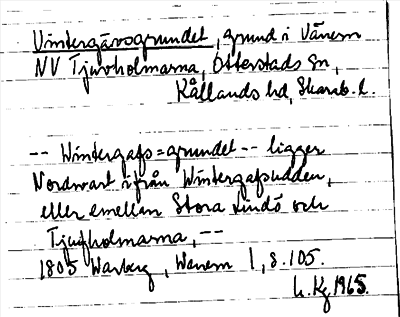 Vintergävsgrundet, grund i Vänern
NV Tjuvholmarna, Otterstads sn,
Kållands hd, Skarab. l.
-- Wintergafs=grundet -- ligger
Nordwart ifrån Wintergafsudden,
eller emellan Stora Lindö och
Tjufholmarna, --
1805 Warberg, Wenern 1, s. 105.
1965.